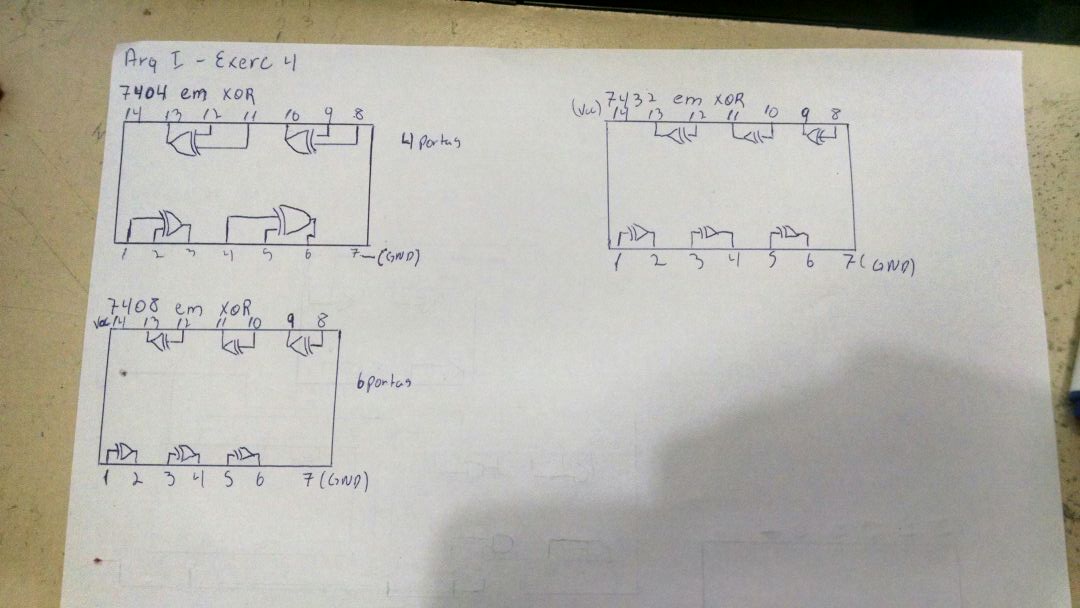 Arq I - Exerc 4
7404 em XOR
14 13 12 11 10 9 8
4 portas
1 2 3 4 5 6 7 (GND)
(Vcc) 7432 em XOR
14 13 12 11 10 9 8
1 2 3 4 5 6 7 (GND)
7408 em XOR
Vcc 14 13 12 11 10 9 8
6 portas
1 2 3 4 5 6 7 (GND)